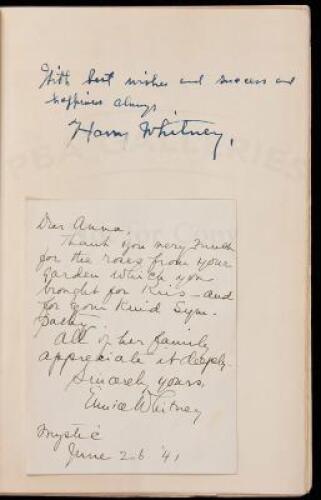 With best wishes and success and
happiness always
Harry Whitney,
PBA GALLERIES
Dear Anna,
Thank you very much
for the roses from your
garden which you
brought for Kris – and
for your kind sym-
pathy.
All of her family
appreciate it deeply.
Sincerely yours,
Eunice Whitney
Mystic
June 26 '41